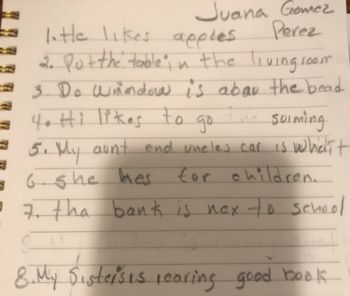 Juana Gomez
Perez
1. He likes apples
2. Put the table in the living room
3. Do window is abau the bead
4. Hi likes to go the suiming
5. My aunt end uncles car is whait
6. she hes for children.
7. tha bank is nex to school
8. My Sister's is rearing good book